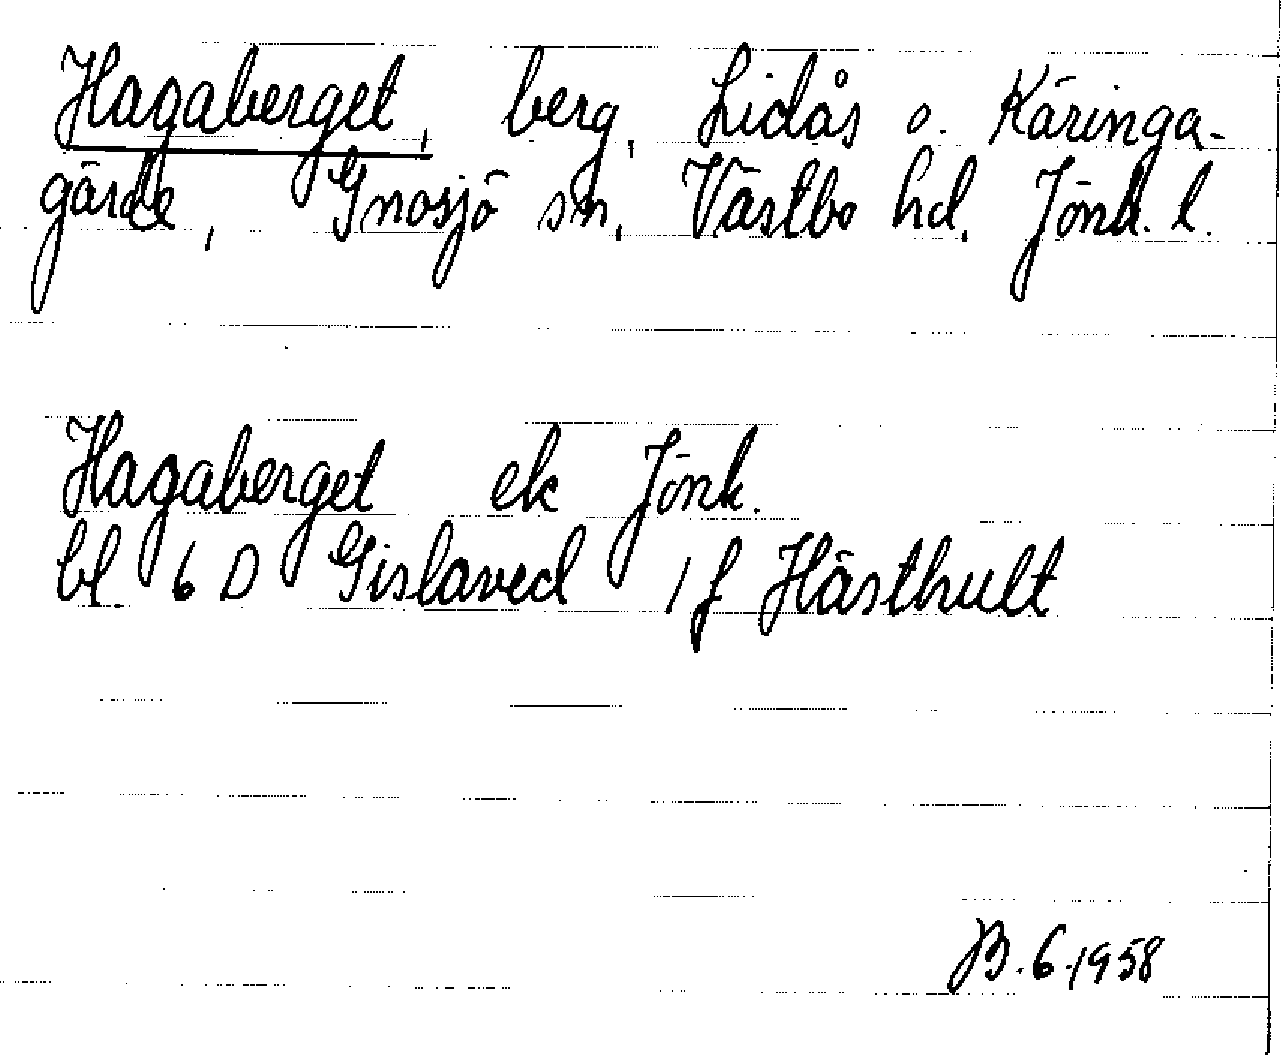 Hagaberget, berg, Lidås o. Käringa-
gärde, Gnosjö sn, Västbo hd, Jönk. l.
Hagaberget ek Jönk.
bl 6 D Gislaved 1 f Hästhult
B. 6. 1958